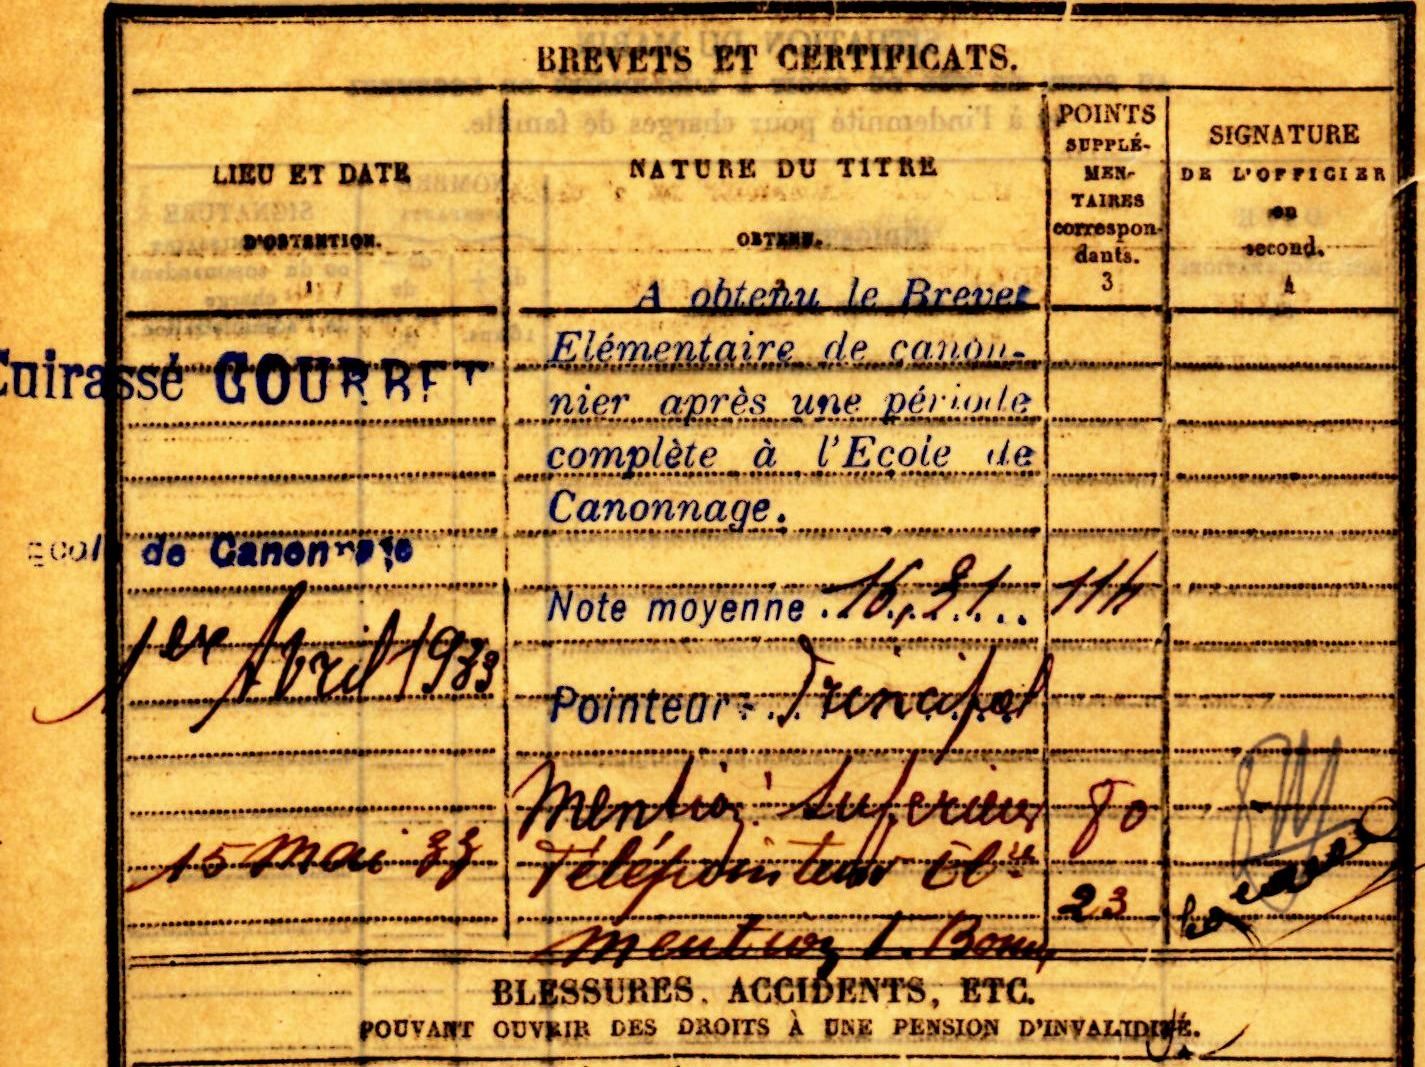 BREVETS ET CERTIFICATS.
LIEU ET DATE
D'OBTENTION.
1
NATURE DU TITRE
OBTENU.
2
POINTS
SUPPLÉ-
MEN-
TAIRES
correspon-
dants.
3
SIGNATURE
DE L'OFFICIER
en
second.
4
A obtenu le Brevet
Elémentaire de canon-
Cuirassé COURBET
nier après une période
complète à l'Ecole de
Canonnage.
Ecole de Canonnage
Note moyenne 16,21 114
1er Avril 1933
Pointeur: Principal
Mention: Supérieur 80
15 Mai 33
Télépointeur El re
23
Mention t. Bonne
BLESSURES, ACCIDENTS, ETC.
POUVANT OUVRIR DES DROITS À UNE PENSION D'INVALIDITÉ.